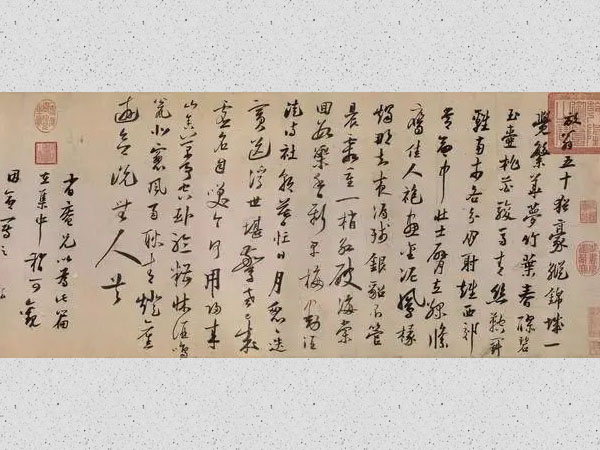 放翁五十猶豪縱錦城一
覺繁華夢竹葉春醪碧
玉壺桃花駿馬青絲鞚鬥
雞南市各分朋射雉西郊
常命中壯士臂立綠絛
鷹佳人袍畫金泥鳳椽
燭那知夜漏殘銀貂不管
晨霜重一梢紅破海棠
回數蕊香新早梅動酒
徒詩社朝暮忙日月匆匆迭
賓送浮世堪驚老已成
虛名自笑今何用歸來
山舍萬事空臥聽糟床酒鳴
甕北窗風雨耿青燈舊
遊欲說無人共
省庵兄以為此篇
在集中稍可觀
因命寫之